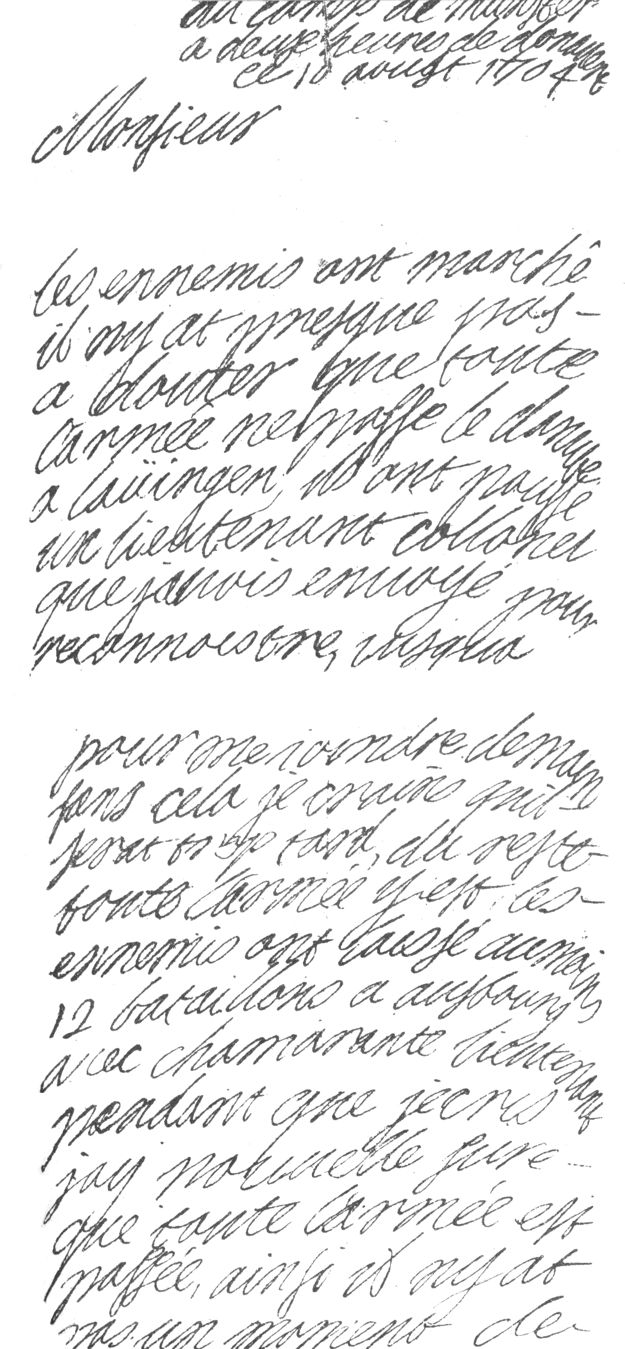 au camp de munster
a deux heures de donavert
ce 10 aougst 1704
Monsieur
les ennemis ont marché
il ny at presque pas
a douter que toute
l'armée ne passe le danube
a lauingen, ils ont pousse
un lieutenant collonel
que javois envoyé pour
reconnoistre, jusqua
pour me joindre demain
sans cela je crains quil
serat trop tard, du reste
toute l'armée y est, les
ennemis ont laissé aumoins
12 bataillons a ausbourg
avec chamarante lieutenant
pendant que jecris
jay nouvelle sure
que toute l'armée est
passée, ainsi il ny at
pas un moment de